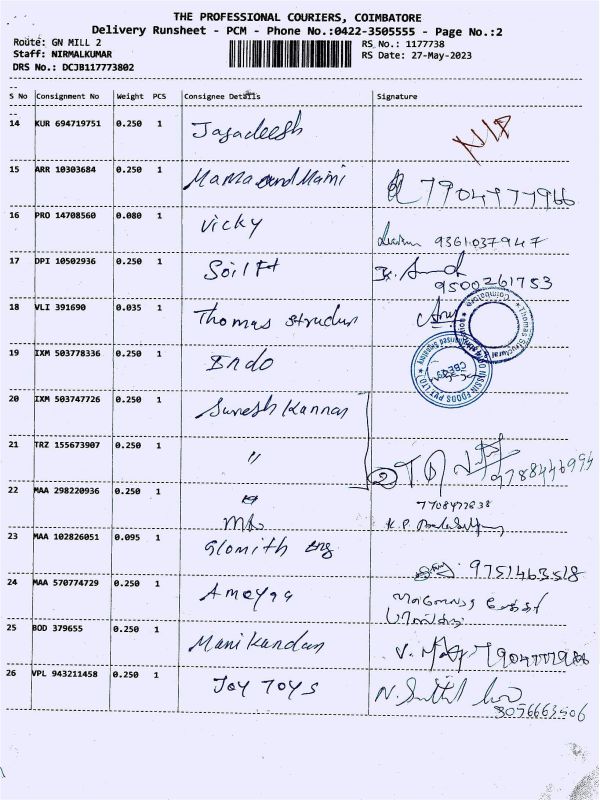 THE PROFESSIONAL COURIERS, COIMBATORE
Delivery Runsheet - PCM - Phone No.:0422-3505555 - Page No.:2
Route: GN MILL 2
Staff: NIRMALKUMAR
DRS No.: DCJB117773802
RS No.: 1177738
RS Date: 27-May-2023
S No Consignment No Weight PCS Consignee Details Signature
14 KUR 694719751 0.250 1 Jagadeesh N/A
15 ARR 10303684 0.250 1 Mama and Mami 7904977966
16 PRO 14708560 0.080 1 Vicky 9361037947
17 DPI 10502936 0.250 1 Soil Ft 9500261753
18 VLI 391690 0.035 1 Thomas
19 IXM 503778336 0.250 1 Indo
20 IXM 503747726 0.250 1 Suresh Kannan
21 TRZ 155673907 0.250 1 " 2 9788446994
22 MAA 298220936 0.250 1 7708477838
23 MAA 102826051 0.095 1 Glomith Eng 9751463518
24 MAA 570774729 0.250 1 Ameyaa
25 BOD 379655 0.250 1 Manikandan
26 VPL 943211458 0.250 1 Joy Toys 8056663506